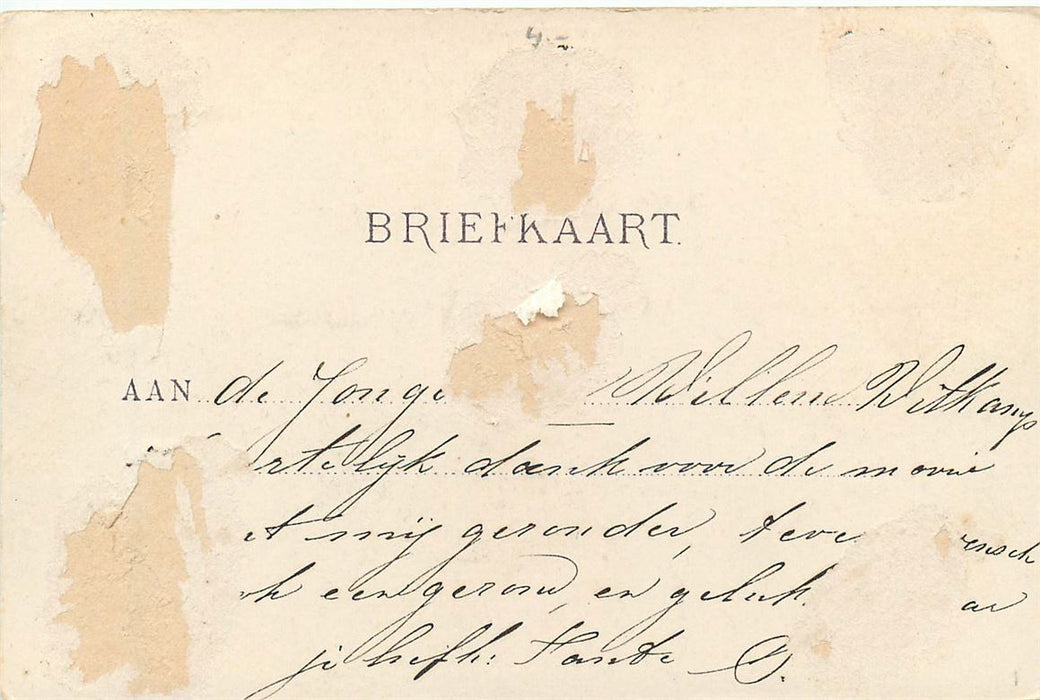 4.-
BRIEFKAART.
AAN de Jonge Willem Witkamp
rtelijk dank voor de mooie
et mij gezonden, teve ensch
ok een gezond, en geluk ar
je liefh: Tante